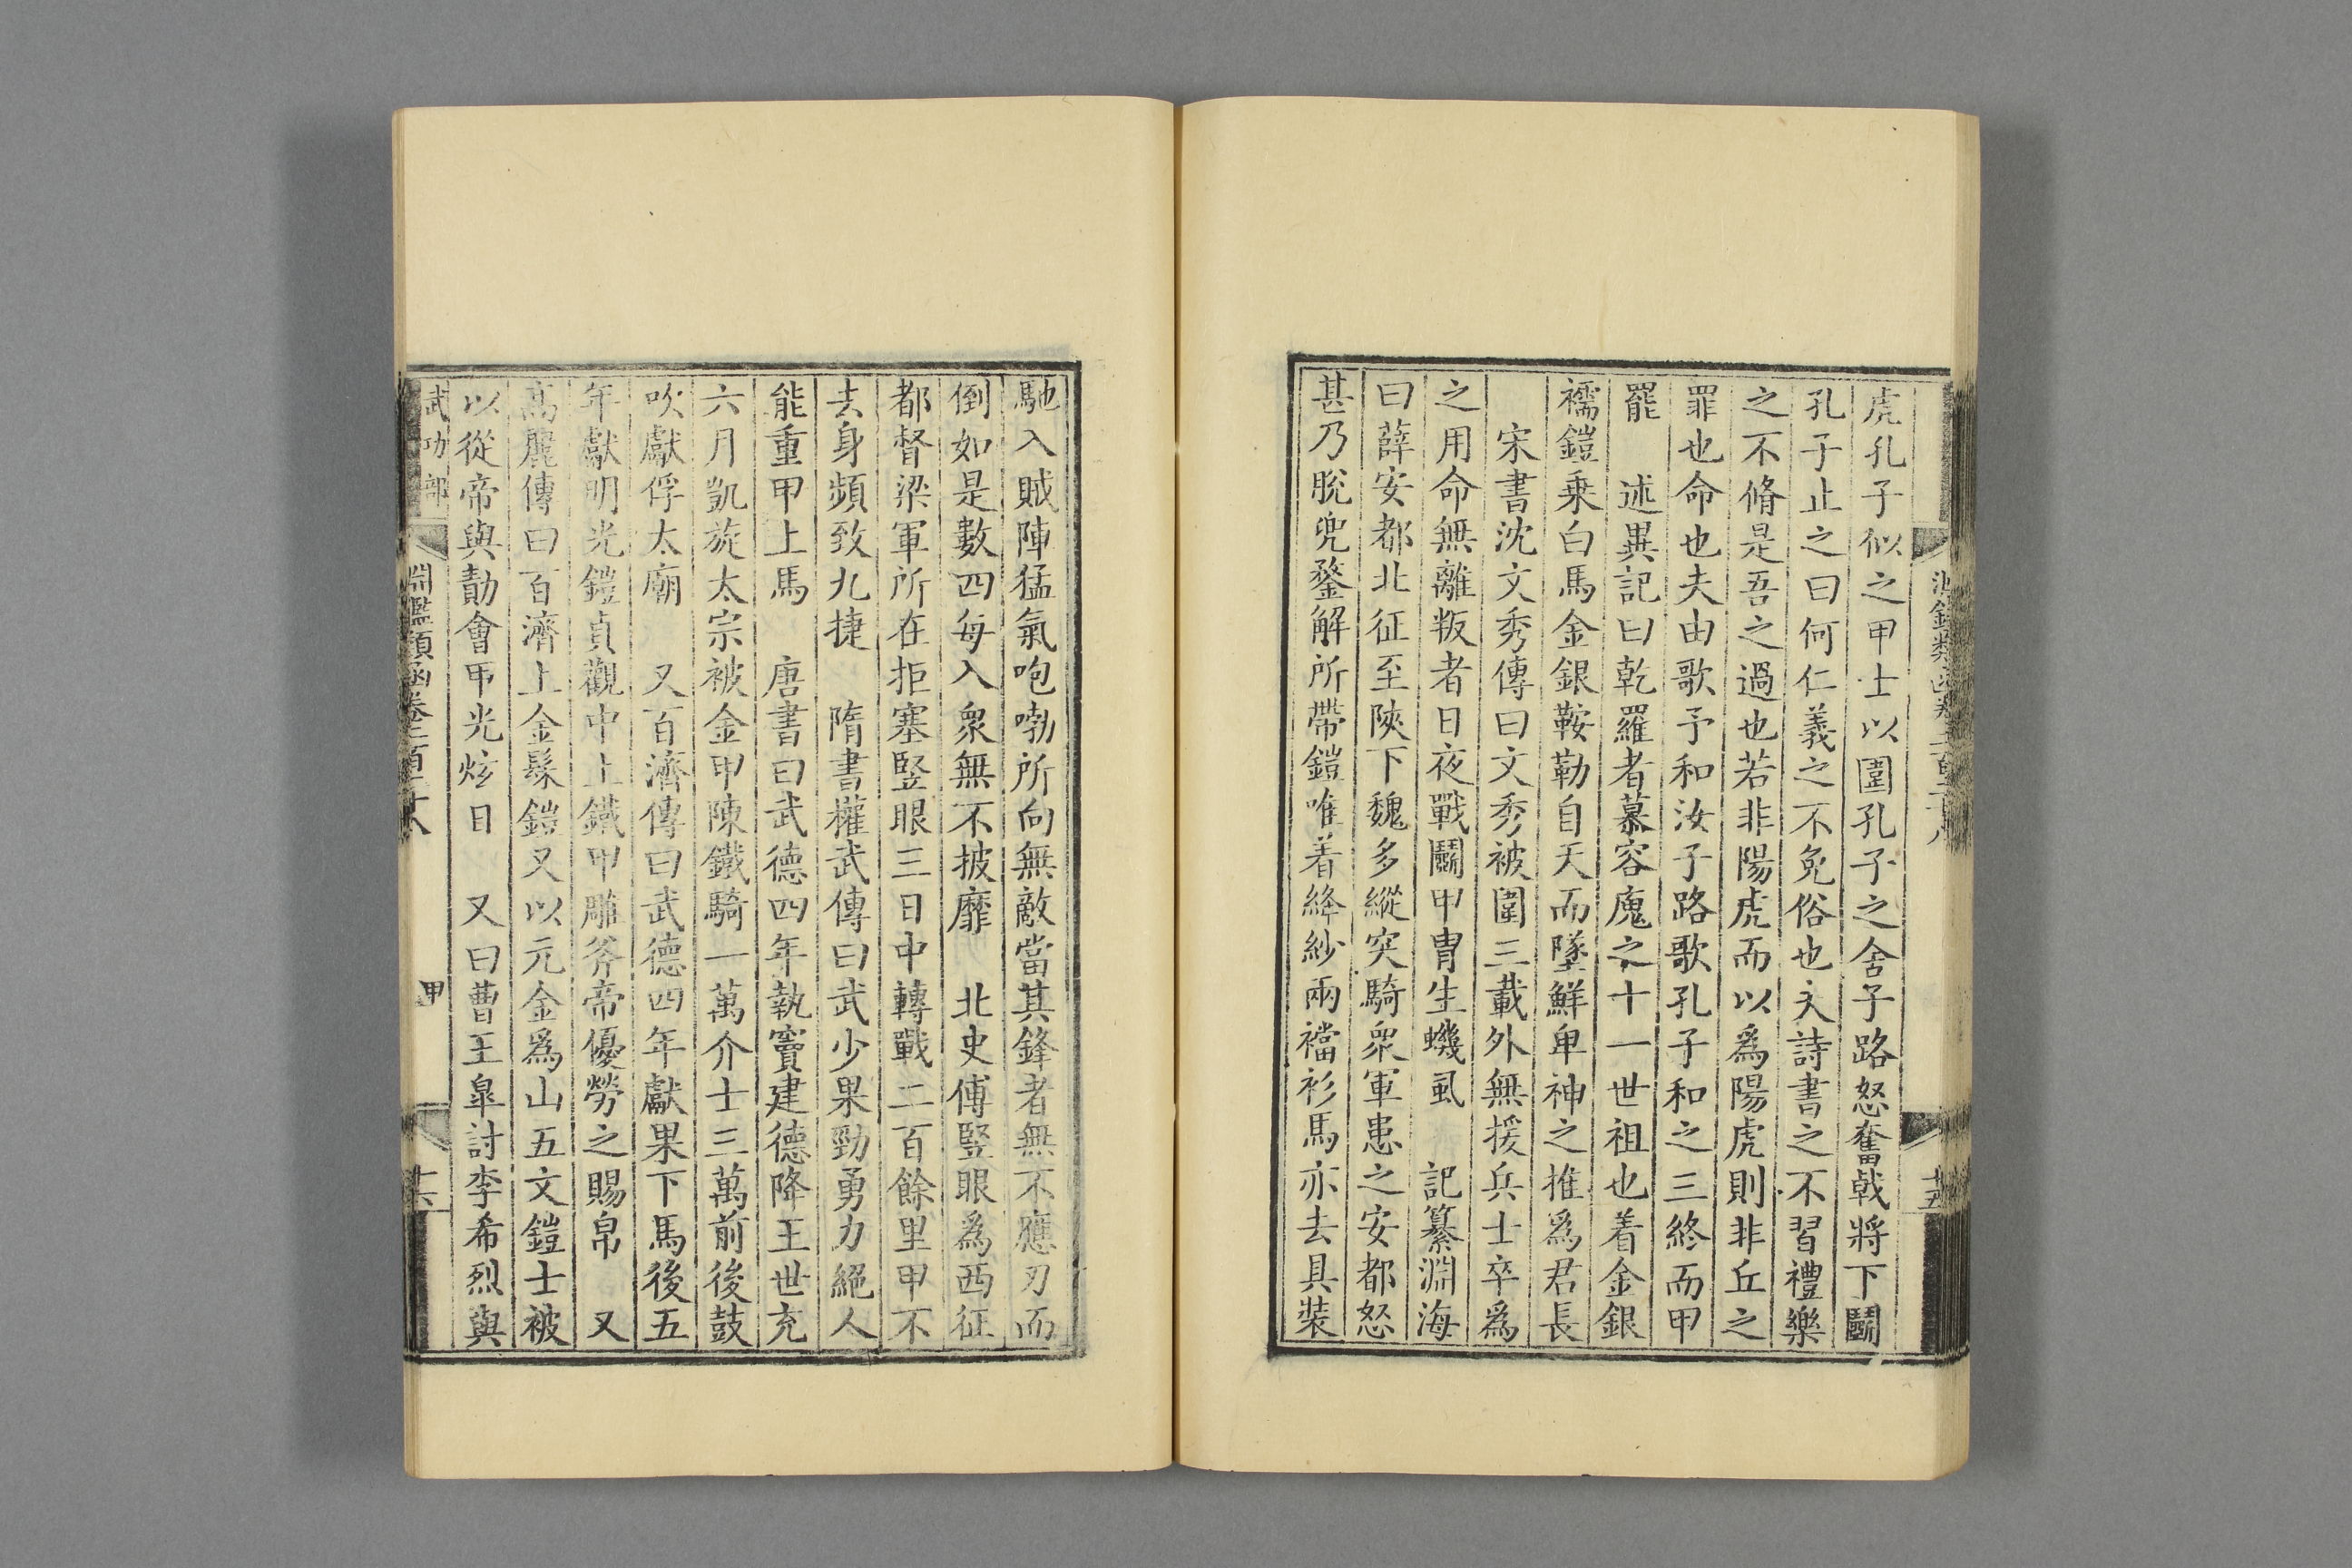 虎孔子似之甲士以圍孔子之舍子路怒奮戟將下鬭
孔子止之曰何仁義之不免俗也夫詩書之不習禮樂
之不脩是吾之過也若非陽虎而以爲陽虎則非丘之
罪也命也夫由歌予和汝子路歌孔子和之三終而甲
罷　述異記曰乾羅者慕容廆之十一世祖也着金銀
襦鎧乗白馬金銀鞍勒自天而墜鮮卑神之推爲君長
宋書沈文秀傳曰文秀被圍三載外無援兵士卒爲
之用命無離叛者日夜戰鬭甲胄生蟣虱　記纂淵海
曰薛安都北征至陝下魏多縱突騎衆軍患之安都怒
甚乃脫兜鍪解所帶鎧唯着絳紗兩襠衫馬亦去具裝
馳入賊陣猛氣咆哮所向無敵當其鋒者無不應刃而
倒如是數四每入衆無不披靡　北史傅竪眼爲西征
都督梁軍所在拒塞竪眼三日中轉戰二百餘里甲不
去身頻致九捷　隋書權武傳曰武少果勁勇力絕人
能重甲上馬　唐書曰武德四年執竇建德降王世充
六月凱旋太宗被金甲陳鐵騎一萬介士三萬前後鼓
吹獻俘太廟　又百濟傳曰武德四年獻果下馬後五
年獻明光鎧貞觀中上鐵甲雕斧帝優勞之賜帛　又
高麗傳曰百濟上金髹鎧又以元金爲山五文鎧士被
以從帝與勣會甲光炫目　又曰曹王臯討李希烈與
武功部　淵鑑類函卷二百二十八　甲　十六